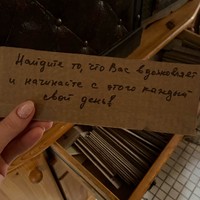 Найдите то, что Вас вдохновляет
и начинайте с этого каждый
свой день!